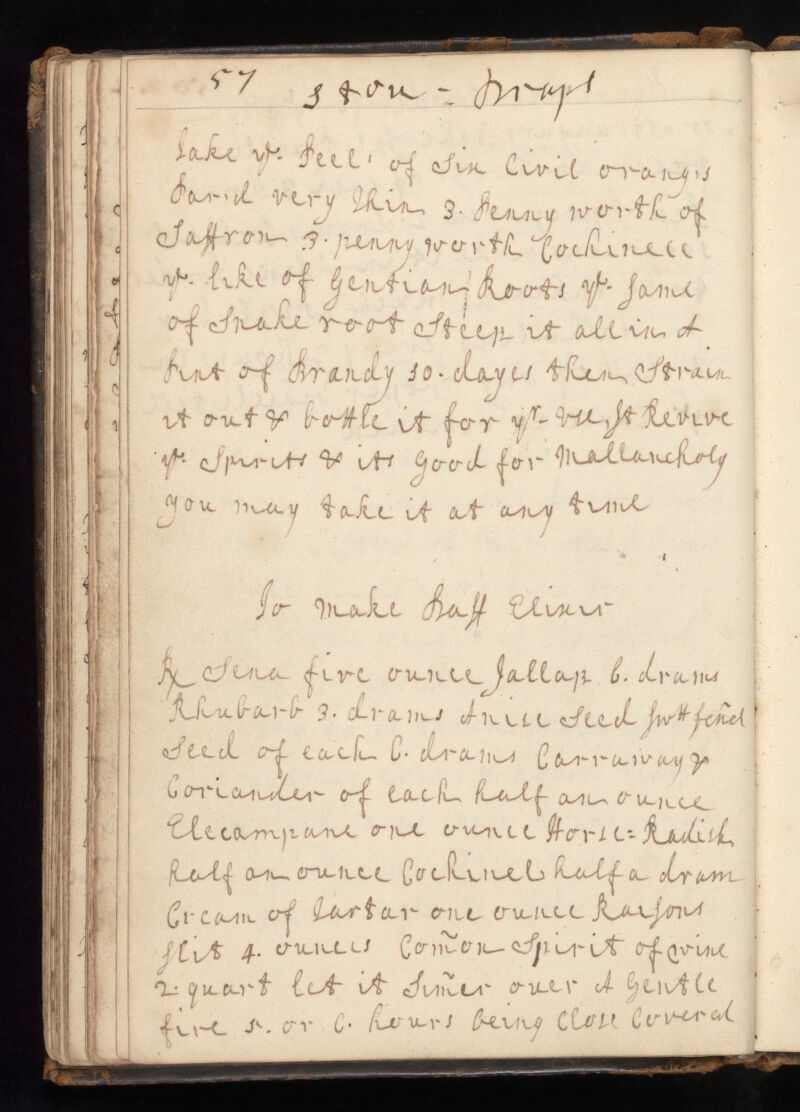 57 Stou - Drops
Take ye. Peel's of Six Civil oranges
Par'd very thin 3. Penny worth of
Saffron 3. penny worth Cochinell
ye. like of Gentian Roots ye. same
of Snake root Steep it all in A
Pint of Brandy 10. dayes then Strain
it out & bottle it for yr- use, It Revive
ye. Spirits & its Good for Mallancholy
you may take it at any time
To make Daff Elixir
Rx Sena five ounce Jallap 6. drams
Rhubarb 3. drams Anise Seed swtt fen̄el
Seed of each 6. drams Carraway &
Coriander of each half an ounce
Elecampane one ounce Horse=Radish
half an ounce Cochinel half a dram
Cream of Tartar one ounce Raisons
slit 4. ounces Com̄on Spirit of wine
2. quart let it Sim̄er over A Gentle
fire 5. or 6. hours being Close Covered